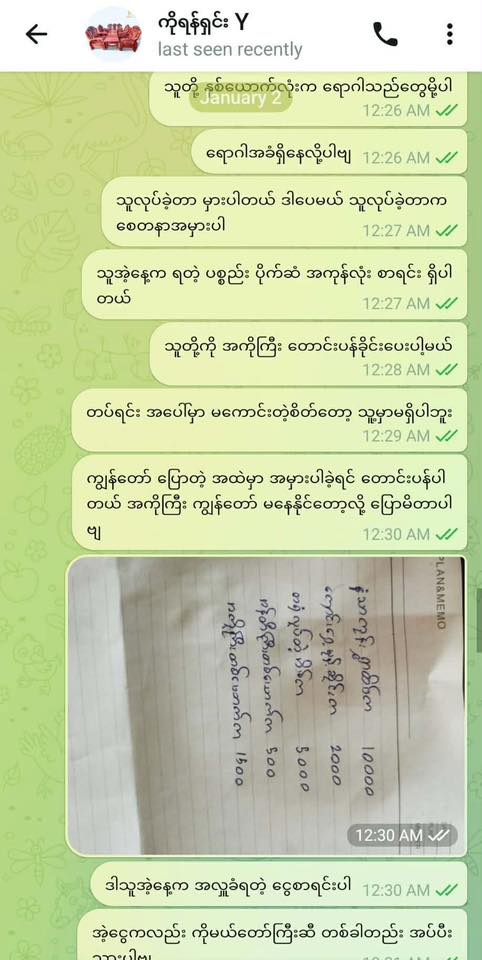 ကိုရန်ရှင်း Y
last seen recently
January 2
သူတို့ နှစ်ယောက်လုံးက ရောဂါသည်တွေမို့ပါ
12:26 AM
ရောဂါအခံရှိနေလို့ပါဗျ 12:26 AM
သူလုပ်ခဲ့တာ မှားပါတယ် ဒါပေမယ် သူလုပ်ခဲ့တာက
စေတနာအမှားပါ 12:27 AM
သူအဲ့နေ့က ရတဲ့ ပစ္စည်း ပိုက်ဆံ အကုန်လုံး စာရင်း ရှိပါ
တယ် 12:27 AM
သူတို့ကို အကိုကြီး တောင်းပန်ခိုင်းပေးပါ့မယ်
12:28 AM
တပ်ရင်း အပေါ်မှာ မကောင်းတဲ့စိတ်တော့ သူ့မှာမရှိပါဘူး
12:29 AM
ကျွန်တော် ပြောတဲ့ အထဲမှာ အမှားပါခဲ့ရင် တောင်းပန်ပါ
တယ် အကိုကြီး ကျွန်တော် မနေနိုင်တော့လို့ ပြောမိတာပါ
ဗျ 12:30 AM
PLAN&MEMO
10000
2000
5000
500
1500
12:30 AM
ဒါသူအဲ့နေ့က အလှူခံရတဲ့ ငွေစာရင်းပါ 12:30 AM
အဲ့ငွေကလည်း ကိုမယ်တော်ကြီးဆီ တစ်ခါတည်း အပ်ပီး